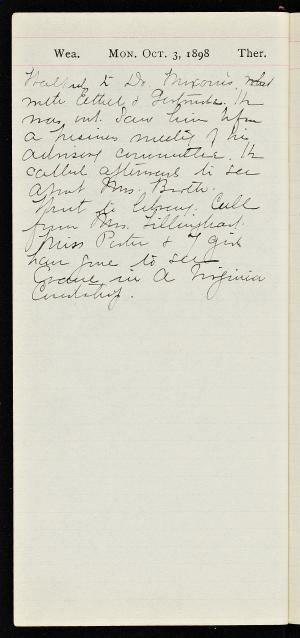 Wea. Mon. Oct. 3, 1898 Ther.
Walked to Dr. Nixon's,
with Ethel & Gertrude. He
was out. Saw him
a business meeting of his
advisory committee. He
called afterward to see
about Mrs. Booth.
Went to library. Call
from Mrs. Tillinghast.
Miss Porter & 7 girls
have gone to see
Crane in A Virginia
Courtship.